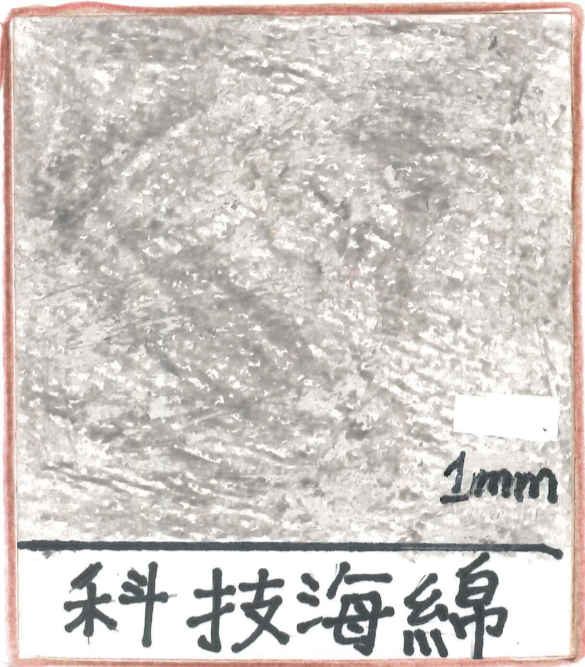 1mm
科技海綿